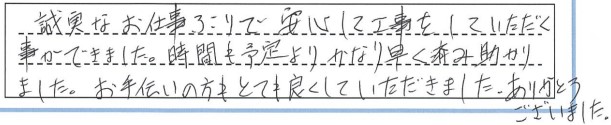 誠実なお仕事ろこりで安心して工事をしていただく
事ができました。時間も予定よりかなり早く済み助かり
ました。お手伝いの方もとても良くしていただきました。ありがとう
ございました。